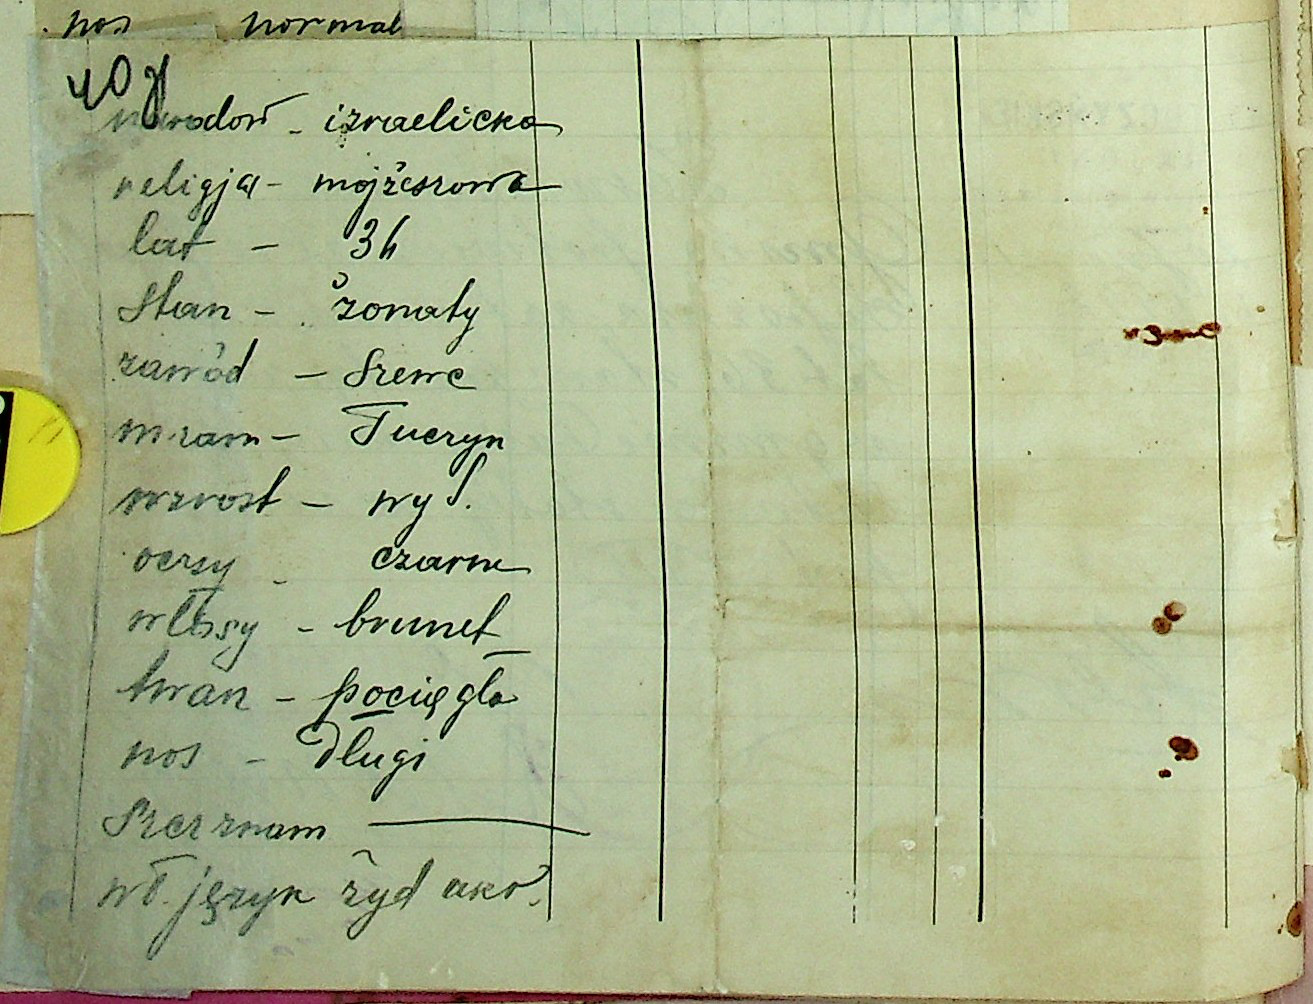 nos normal
narodow - izraelicka
religja - mojżeszowa
lat - 36
Stan - żonaty
zawód - Szewc
m.zam - Tuczyn
wzrost - wys.
oczy - czarne
włosy - brunet
twarz - pociągła
nos - Długi
Szcz znam
wł. język żyd ukr.